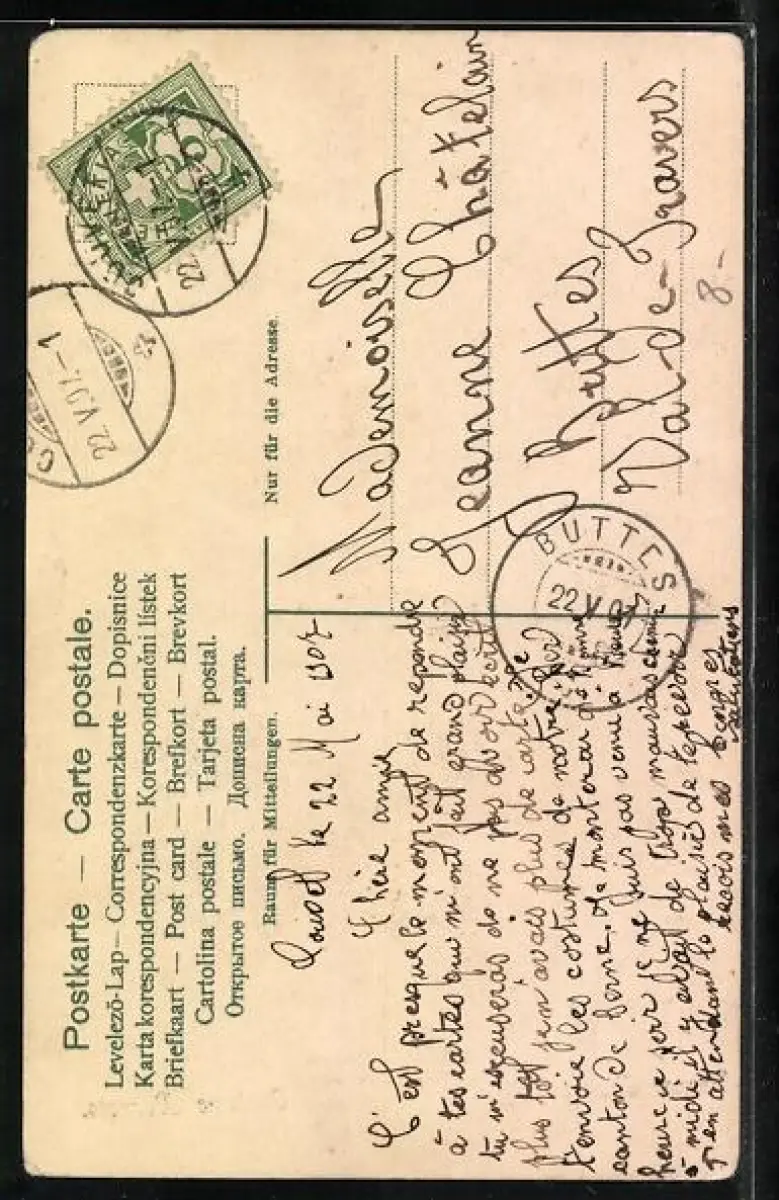 Postkarte — Carte postale.
Levelező-Lap — Correspondenzkarte — Dopisnice
Karta korespondencyjna — Korespondenční lístek
Briefkaart — Post card — Brefkort — Brevkort
Cartolina postale — Tarjeta postal.
Открытое письмо. Дописна карта.
Raum für Mitteilungen.
Nur für die Adresse.
le 22 Mai 1907
Chère amie
C'est presque le moment de repondre
à tes cartes qui m'ont fait grand plaisir
tu m'excuseras de ne pas avoir écrit
plus tot j'en avais plus de carte je
t'envoie les costumes de notre
canton de Berne.
heure ce soir je ne suis pas venu à
midi il y avait de trop mauvais chemin
en attendant le plaisir de te revoir
reçois mes
salutations
Mademoiselle
Jeanne Châtelain
Buttes
Val-de-Travers
8-
22.V.07.-1
22.V.07.-1
BUTTES
22 V 07